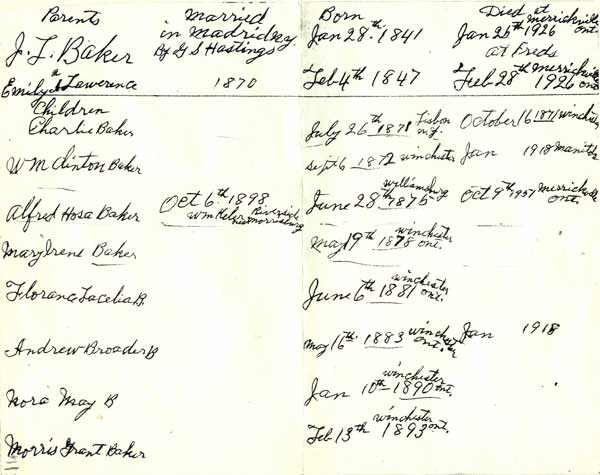 Parents Married Born Died at Merrickville Ont.
in Madrid N.Y. Jan 28th 1841 Jan 26th 1926
J. L. Baker By G S Hastings at Freds
Emily A Lawerence 1870 Feb 4th 1847 Feb 28th 1926 Merrickville Ont
Children
Charlie Baker July 26th 1871 Lisbon N.Y. October 16 1871 Winchester
Wm Clinton Baker Sept 6 1872 Winchester Jan 1918 Manitoba
Alfred Hosa Baker Oct 6th 1898 June 28th 1875 Williamsburg Oct 9th 1957 Merrickville Ont.
Wm Riverside Morrisburg
Mary Irene Baker May 19th 1878 Winchester Ont.
Florance Lacelia B. June 6th 1881 Winchester Ont.
Andrew Broader B May 16th 1883 Winchester Ont. Jan 1918
Nora May B Jan 10th 1890 Winchester Ont.
Morris Grant Baker Feb 13th 1893 Winchester Ont.